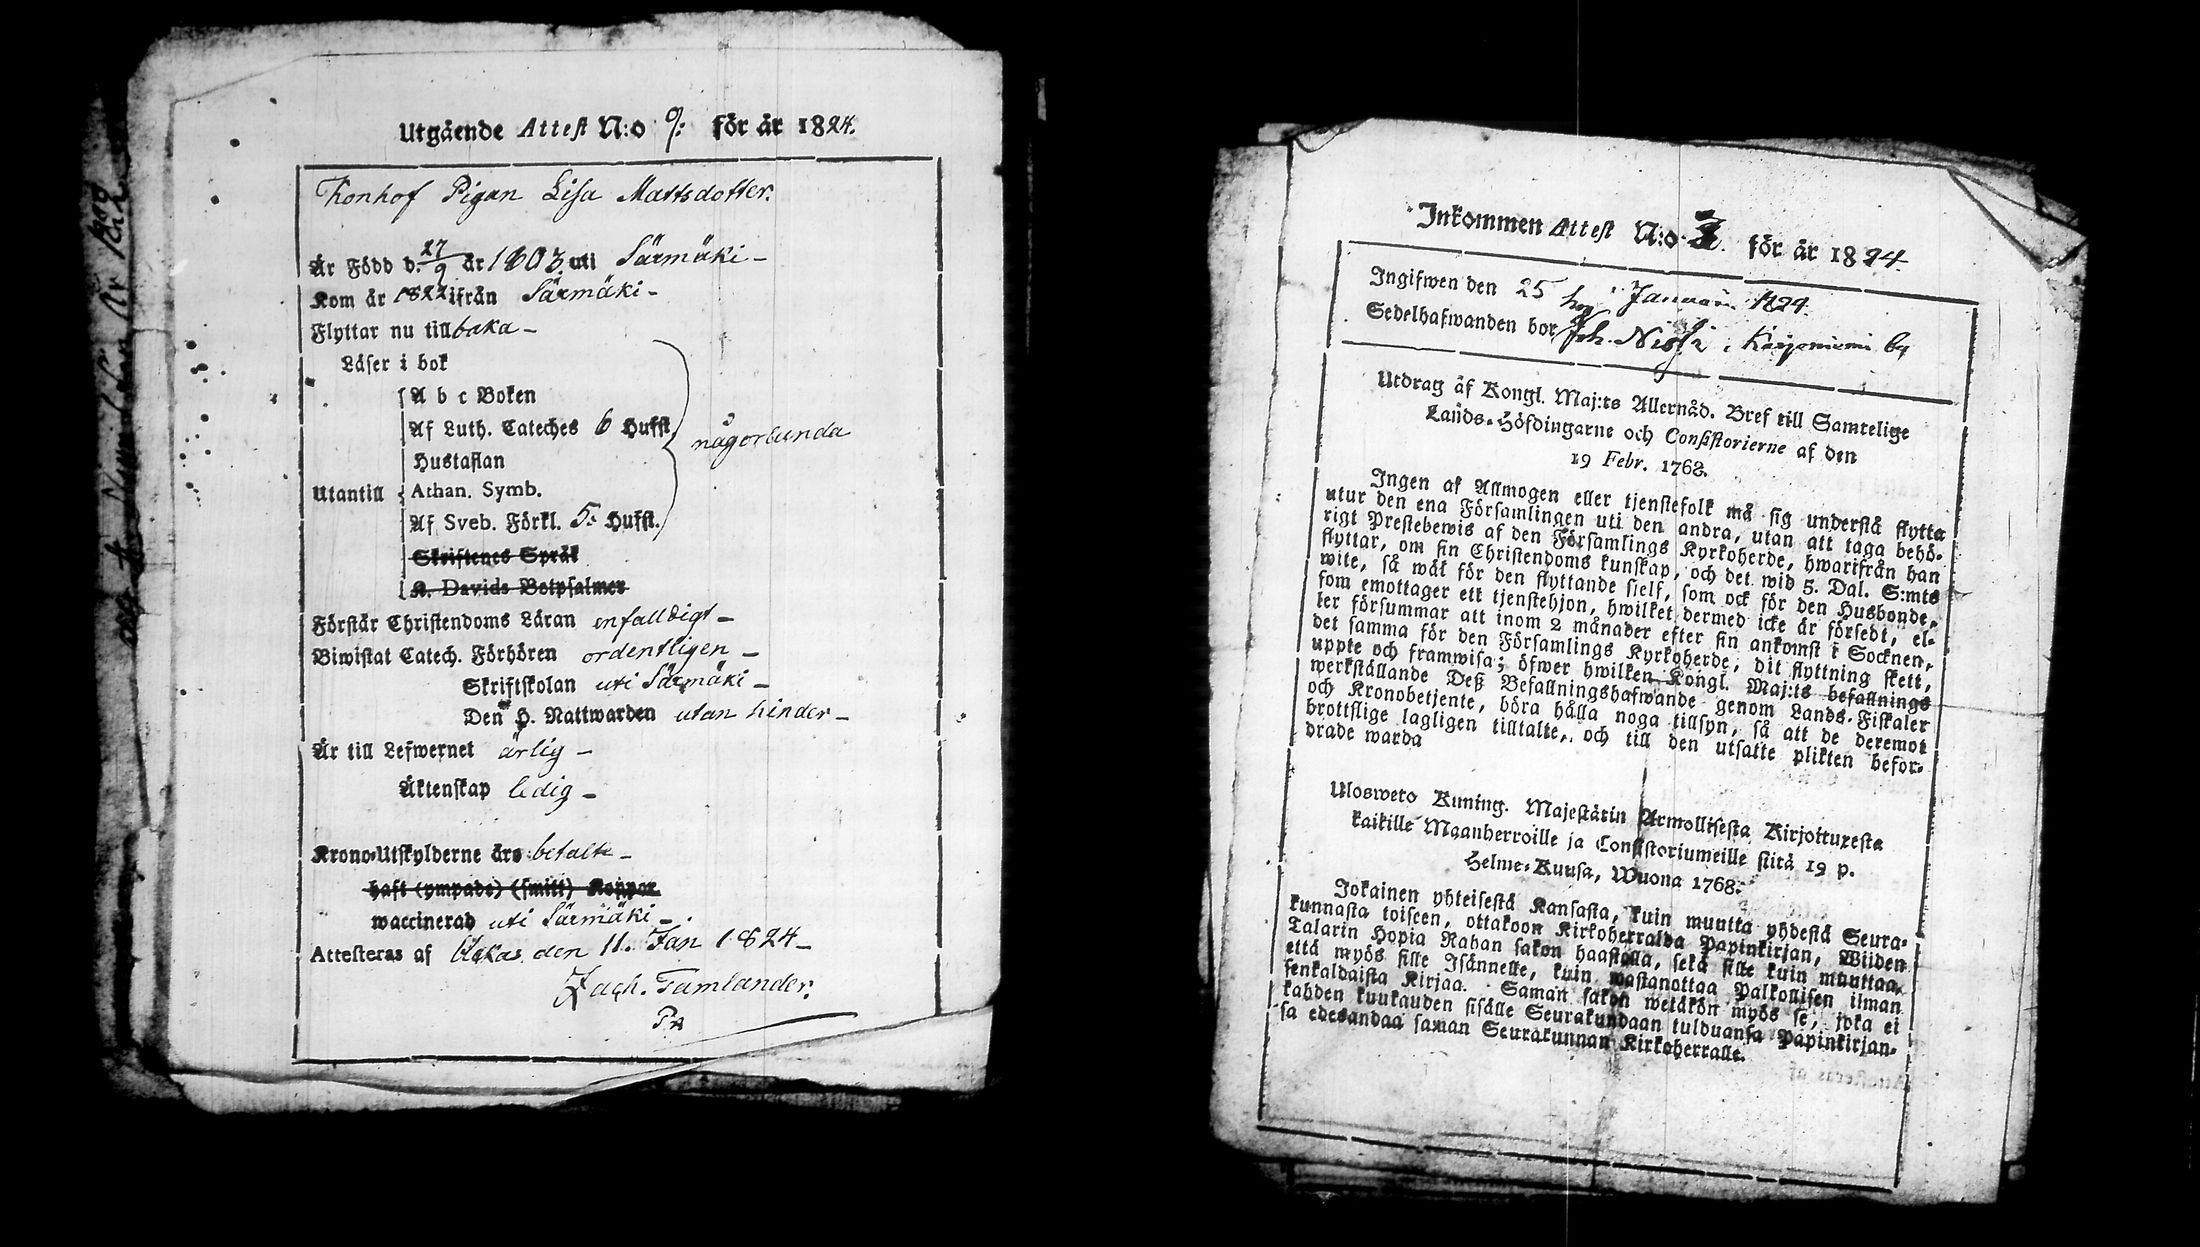 Utgående Attest N:o 9: för år 1824.
Konhof Pigan Lisa Mattsdotter.
Är Född d. 27/9 år 1803 uti Särmäki –
Kom år 1822 ifrån Särmäki –
Flyttar nu tillbaka –
Läser i bok
A b c Boken
Af Luth. Cateches 6 Hufst.
någorlunda
Hustaflan
Utantill
Athan. Symb.
Af Sveb. Förkl. 5: Hufst.
Skriftenes Språk
K. Davids Botpsalmer
Förstår Christendoms Läran enfalldigt –
Biwistat Catech. Förhören ordentligen –
Skriftskolan uti Särmäki –
Den H. Nattwarden utan hinder –
Är till Lefwernet ärlig –
Äktenskap ledig –
Krono-Utskylderne äro betalte –
haft (ympade) (smitt) Koppor.
waccinerad uti Särmäki –
Attesteras af den 11. Jan 1824 –
Zach. Tamlander.
Inkommen Attest N:o 3 för år 1824.
Ingifwen den 25 Januari 1824.
Sedelhafwanden bor hos Joh. i by
Utdrag af Kongl. Maj:ts Allernåd. Bref till Samtelige
Lands-Höfdingarne och Consistorierne af den
19 Febr. 1768.
Ingen af Allmogen eller tjenstefolk må sig understå flytta
utur den ena Församlingen uti den andra, utan att taga behö-
rigt Prestebewis af den Församlings Kyrkoherde, hwarifrån han
flyttar, om sin Christendoms kunskap, och det wid 5. Dal. S:mts
wite, så wäl för den flyttande sielf, som ock för den Husbonde,
som emottager ett tjenstehjon, hwilket dermed icke är försedt, el-
ler försummar att inom 2 månader efter sin ankomst i Socknen,
det samma för den Församlings Kyrkoherde, dit flyttning skett,
uppte och framwisa; öfwer hwilken Kongl. Maj:ts befallnings
werkställande Deß Befallningshafwande genom Lands-Fiskaler
och Kronobetjente, böra hålla noga tillsyn, så att de deremot
brottslige lagligen tilltalte, och till den utsatte plikten befor-
drade warda
Ulosweto Kuning. Majestätin Armollisesta Kirjoituxesta
kaikille Maanherroille ja Consistoriumeille siitä 19 p.
Helme-Kuusa, Wuona 1768.
Jokainen yhteisestä Kansasta, kuin muutta yhdestä Seura-
kunnasta toiseen, ottakoon Kirkoherralda Papinkirjan, Wiiden
Talarin Hopia Rahan sakon haastolla, sekä sille kuin muuttaa,
että myös sille Isännelle, kuin wastanottaa Palkollisen ilman
senkaldaista Kirjaa. Saman sakon wetäkön myös se, joka ei
kahden kuukauden sisälle Seurakundaan tulduansa Papinkirjan-
sa edesandaa saman Seurakunnan Kirkoherralle.